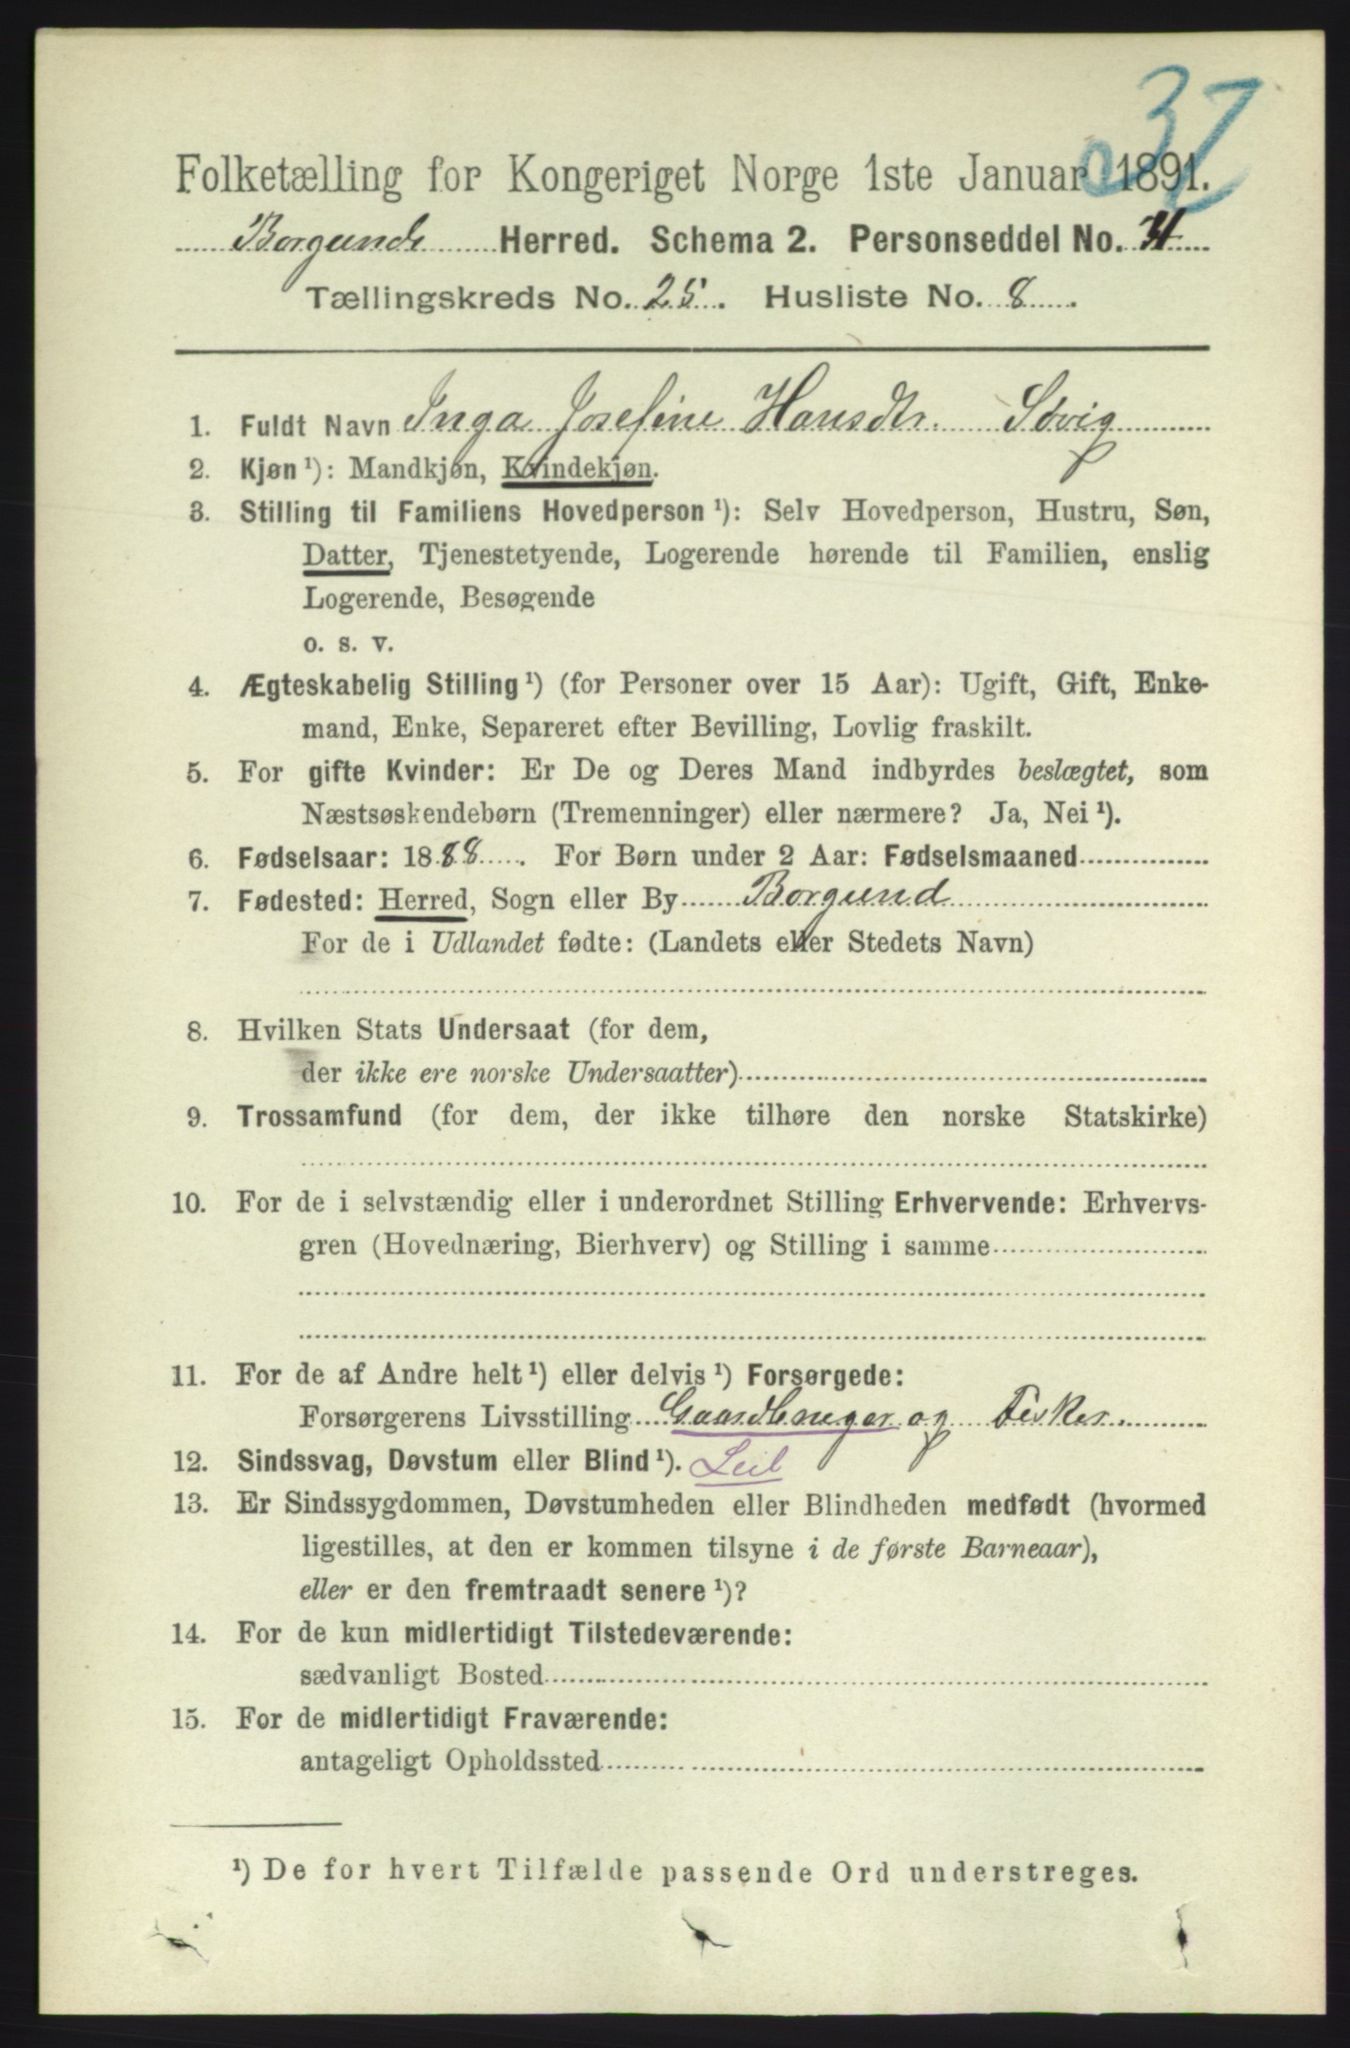 32
Folketælling for Kongeriget Norge 1ste Januar 1891.
Borgund Herred. Schema 2. Personseddel No.
Tællingskreds No. 25. Husliste No. 8.
1. Fuldt Navn Inga Josefine Hansdtr. Søvig
2. Kjøn ¹): Mandkjøn, Kvindekjøn.
3. Stilling til Familiens Hovedperson ¹): Selv Hovedperson, Hustru, Søn,
Datter, Tjenestetyende, Logerende hørende til Familien, enslig
Logerende, Besøgende
o. s. v.
4. Ægteskabelig Stilling ¹) (for Personer over 15 Aar): Ugift, Gift, Enke-
mand, Enke, Separeret efter Bevilling, Lovlig fraskilt.
5. For gifte Kvinder: Er De og Deres Mand indbyrdes beslægtet, som
Næstsøskendebørn (Tremenninger) eller nærmere? Ja, Nei ¹).
6. Fødselsaar: 1888. For Børn under 2 Aar: Fødselsmaaned
7. Fødested: Herred, Sogn eller By Borgund
For de i Udlandet fødte: (Landets eller Stedets Navn)
8. Hvilken Stats Undersaat (for dem,
der ikke ere norske Undersaatter)
9. Trossamfund (for dem, der ikke tilhøre den norske Statskirke)
10. For de i selvstændig eller i underordnet Stilling Erhvervende: Erhvervs-
gren (Hovednæring, Bierhverv) og Stilling i samme
11. For de af Andre helt ¹) eller delvis ¹) Forsørgede:
Forsørgerens Livsstilling Gaardbruger og Fisker.
12. Sindssvag, Døvstum eller Blind ¹). Leil
13. Er Sindssygdommen, Døvstumheden eller Blindheden medfødt (hvormed
ligestilles, at den er kommen tilsyne i de første Barneaar),
eller er den fremtraadt senere ¹)?
14. For de kun midlertidigt Tilstedeværende:
sædvanligt Bosted
15. For de midlertidigt Fraværende:
antageligt Opholdssted
¹) De for hvert Tilfælde passende Ord understreges.